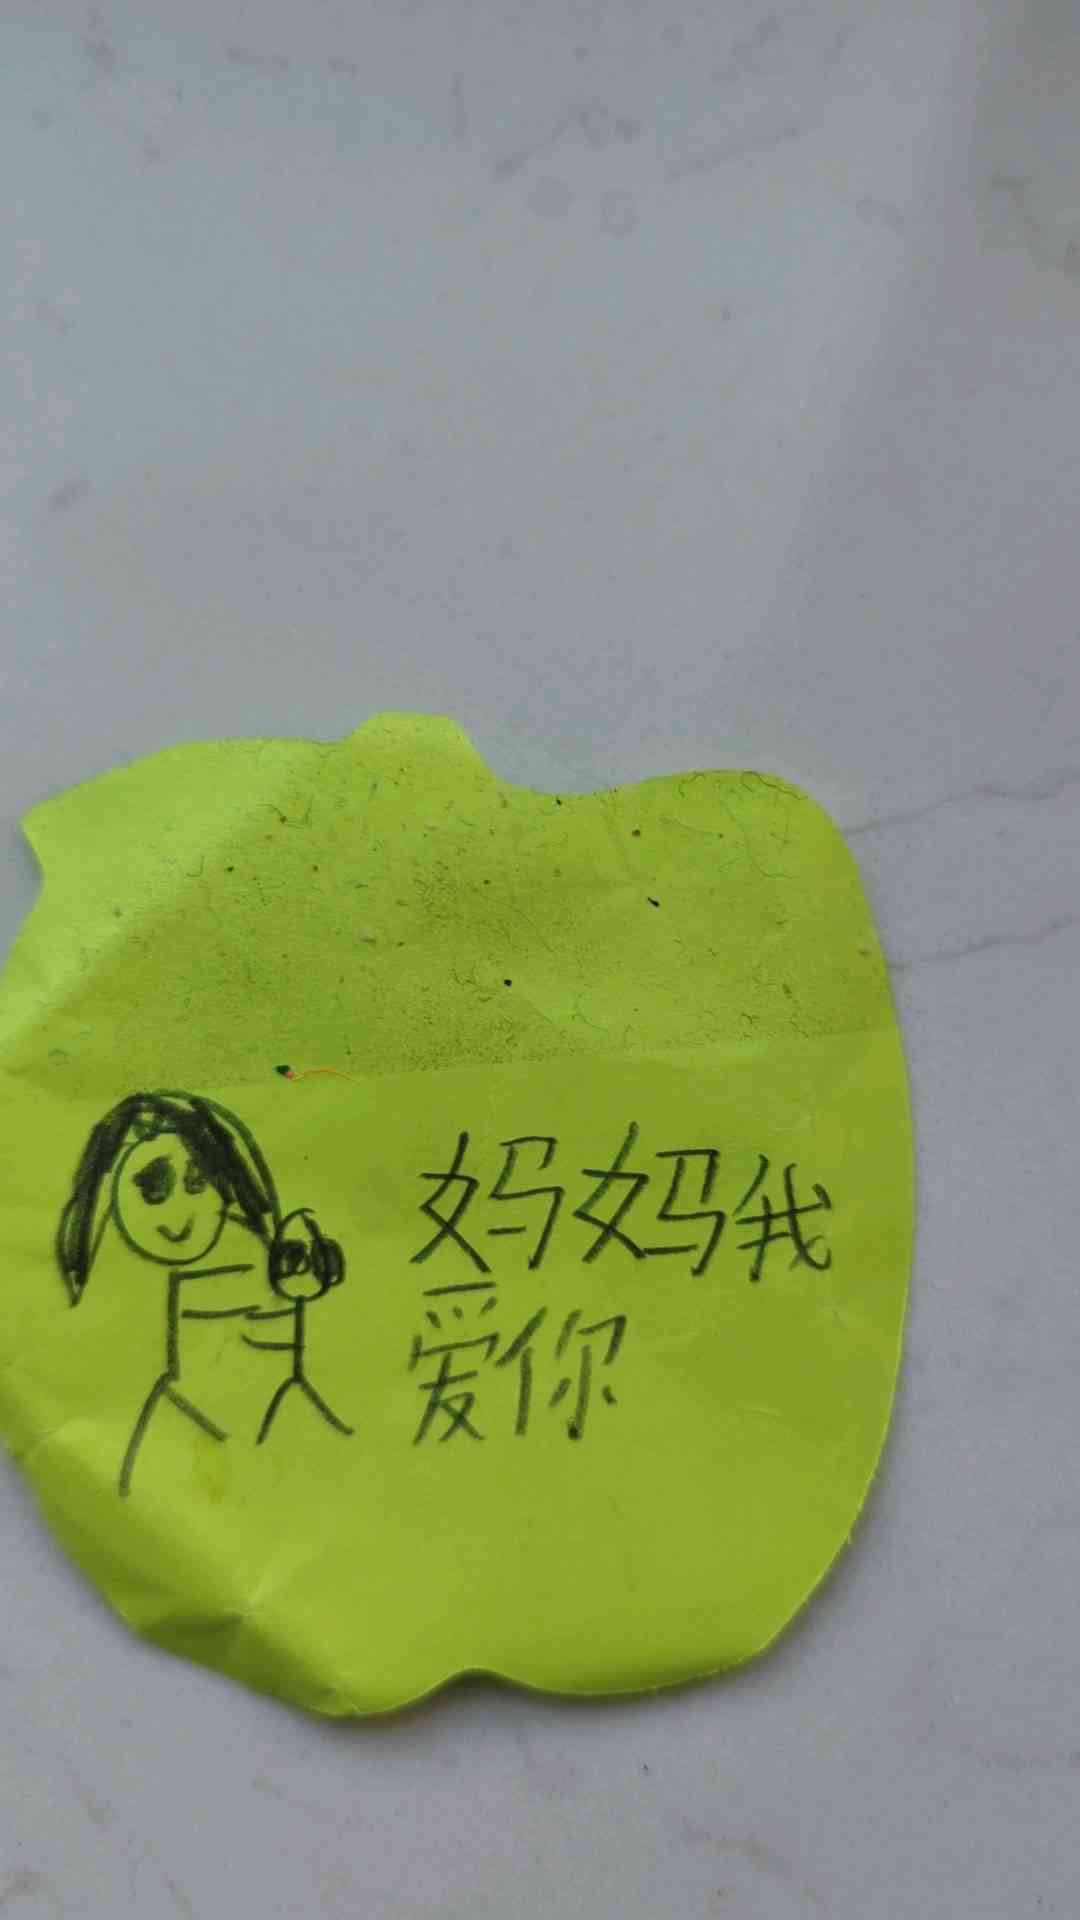 妈妈我
爱你